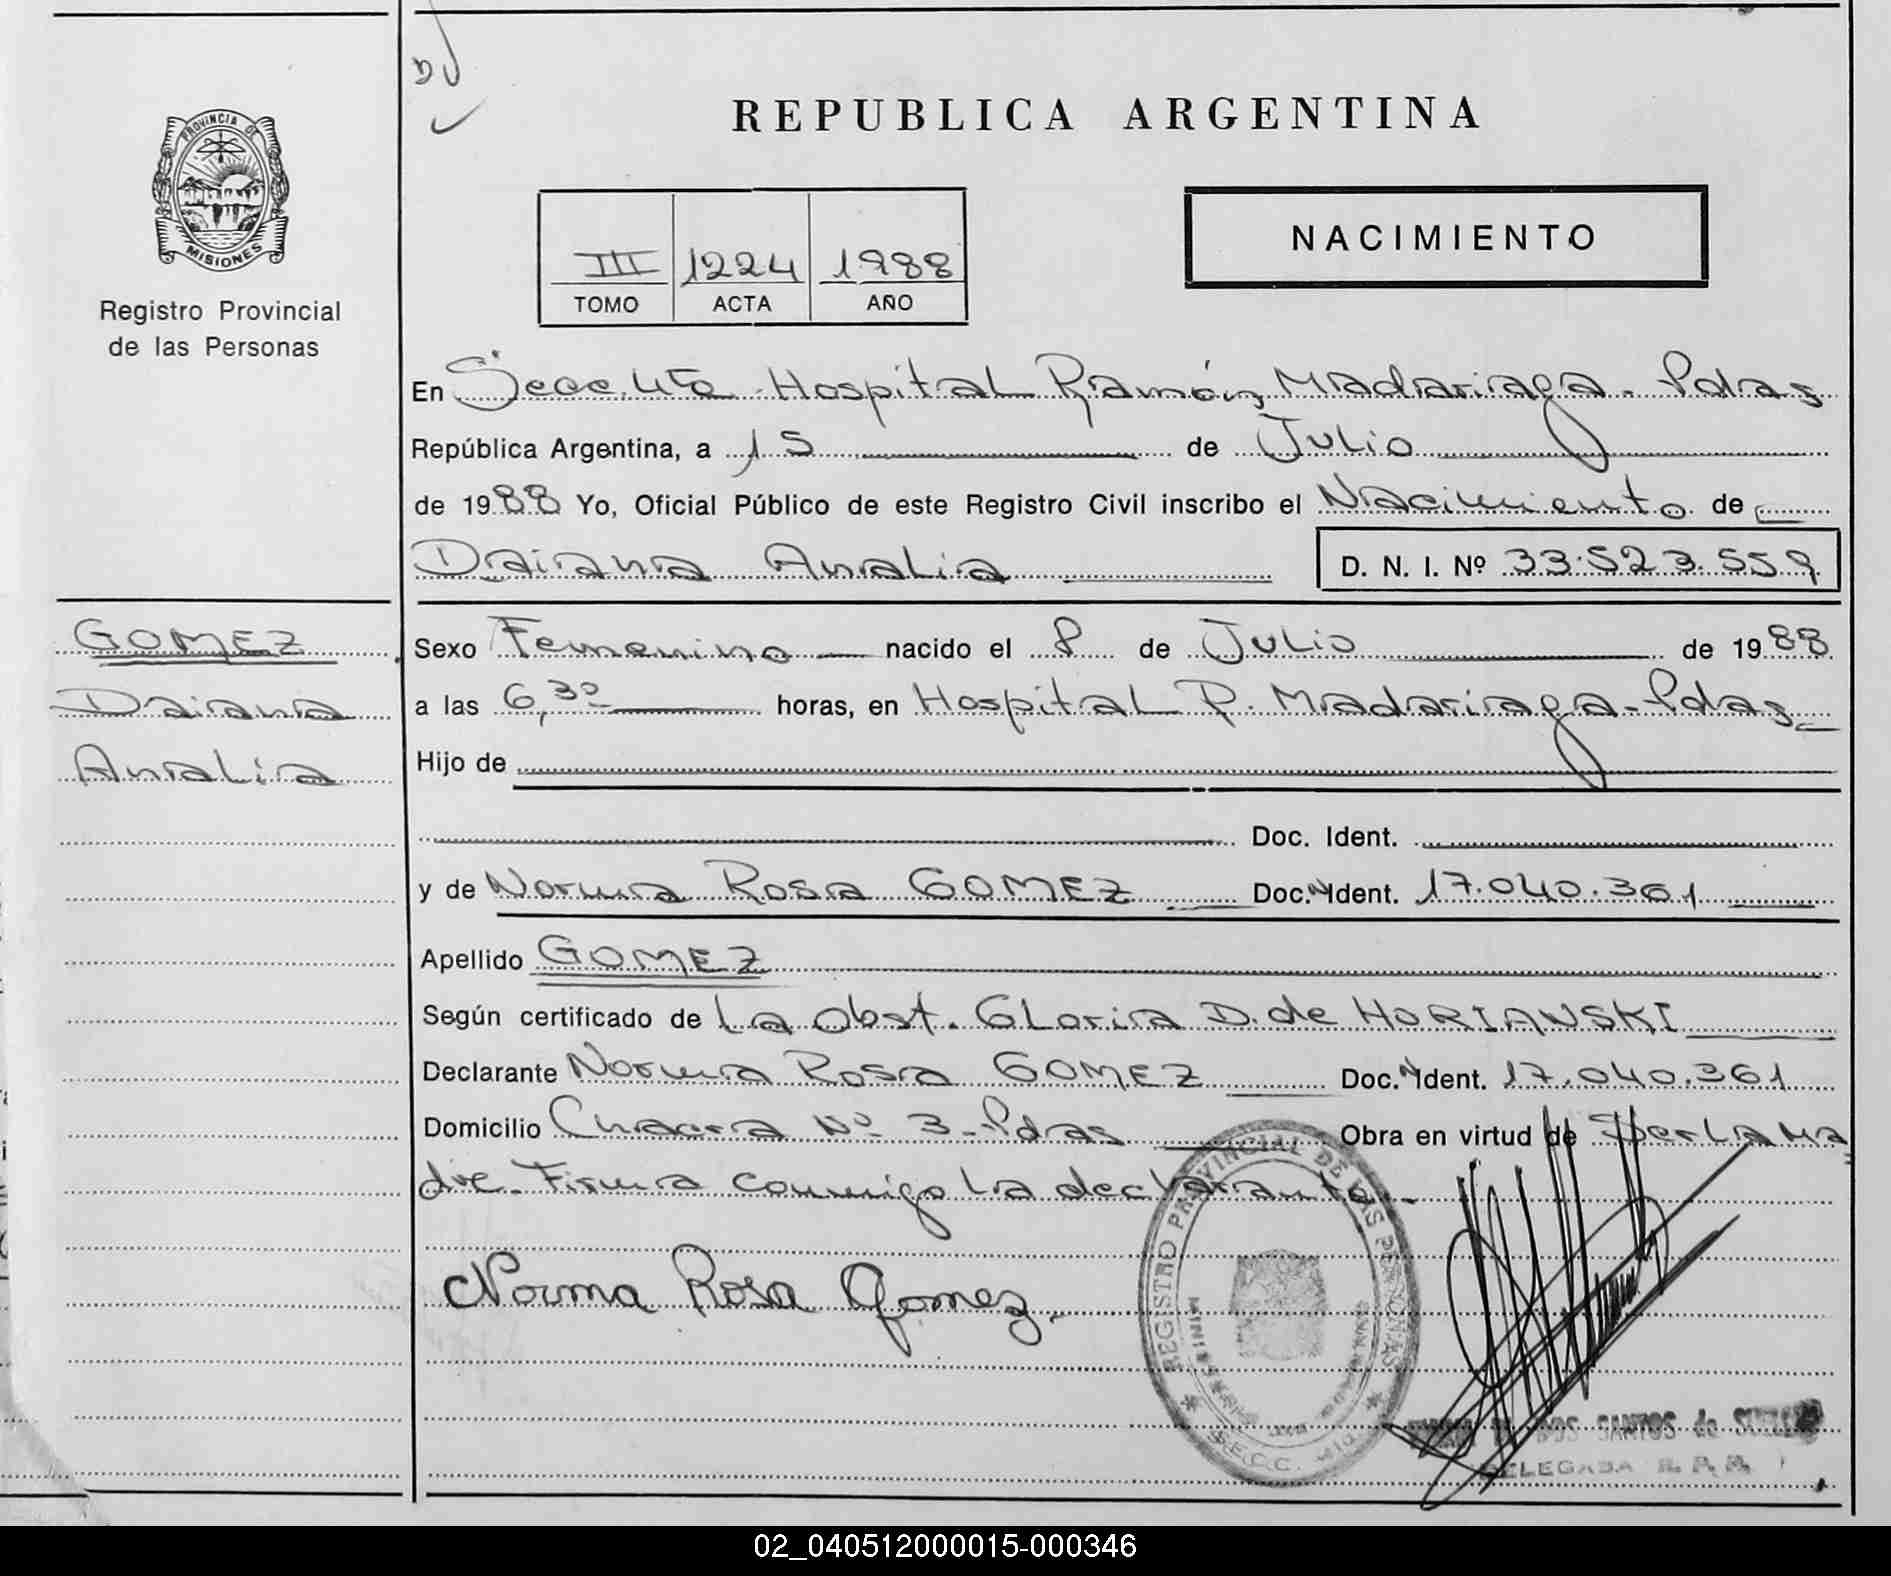 PROVINCIA DE
MISIONES
Registro Provincial
de las Personas
GOMEZ
Daiana
Analía
REPUBLICA ARGENTINA
III 1224 1988
TOMO ACTA AÑO
NACIMIENTO
En Secc. 4ta Hospital Ramón Madariaga - Pdas
República Argentina, a 15 de Julio
de 1988 Yo, Oficial Público de este Registro Civil inscribo el Nacimiento de
Daiana Analia D. N. I. Nº 33.523.559
Sexo Femenino nacido el 8 de Julio de 1988
a las 6,30 horas, en Hospital R. Madariaga - Pdas
Hijo de
Doc. Ident.
y de Norma Rosa GOMEZ Doc. N Ident. 17.040.361
Apellido GOMEZ
Según certificado de La Obst. Gloria D. de HORIANSKI
Declarante Norma Rosa GOMEZ Doc. N Ident. 17.040.361
Domicilio Chacra Nº 3 - Pdas Obra en virtud de Ser La Ma
dre. Firma conmigo la declarante.
Norma Rosa Gomez.
REGISTRO PROVINCIAL DE LAS PERSONAS
DOS SANTOS de
DELEGADA R. P. P.
02_040512000015-000346